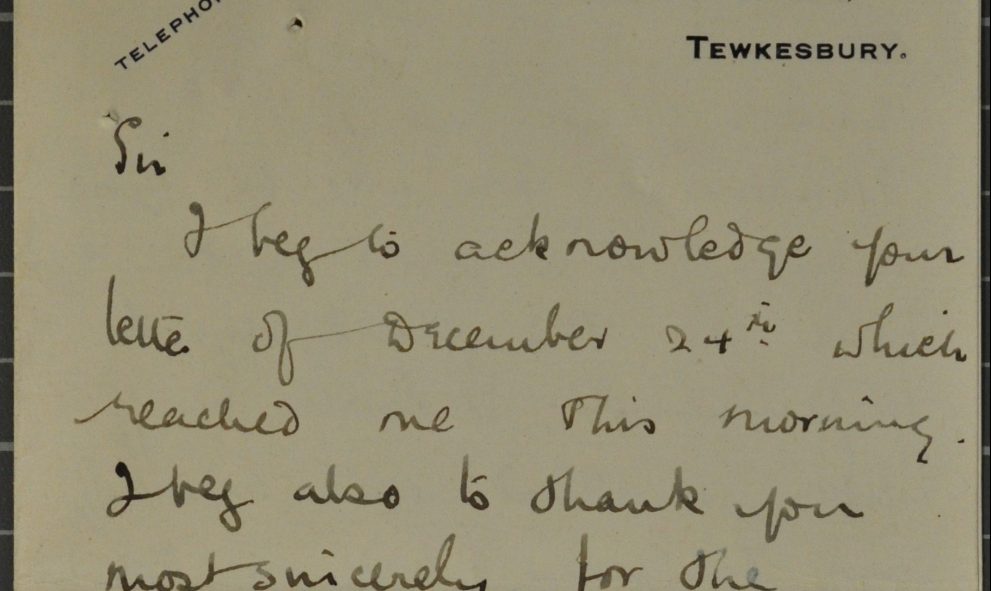 TEWKESBURY.
Sir
I beg to acknowledge your
letter of December 24th which
reached me this morning.
I beg also to thank you
most sincerely for the